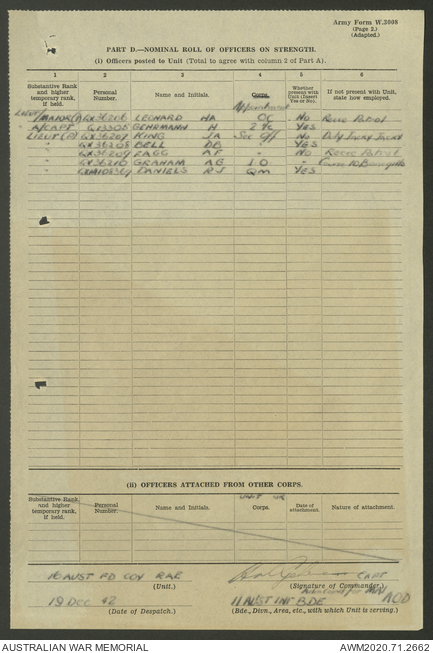 Army Form W.3008
(Page 2.)
(Adapted.)
PART D.—NOMINAL ROLL OF OFFICERS ON STRENGTH.
(i) Officers posted to Unit (Total to agree with column 2 of Part A).
1 2 3 4 5 6
Substantive Rank and higher temporary rank, if held. Personal Number. Name and Initials. Corps. Whether present with Unit (Insert Yes or No). If not present with Unit, state how employed.
Appointment
LIEUT
MAJOR QX36206 LEONARD HA OC NO Recce Patrol
A/CAPT GEHRMANN H 2 i/c YES
LIEUT KING JA Sec Off No Duty
" QX36208 BELL DB " YES
" QX36209 FAGG AF " NO Recce Patrol
" QX36210 GRAHAM AG I.O. "
" DANIELS RJ QM YES
(ii) OFFICERS ATTACHED FROM OTHER CORPS.
Substantive Rank and higher temporary rank, if held. Personal Number. Name and Initials. UNIT OR Corps. Date of attachment. Nature of attachment.
16 AUST FD COY RAE CAPT
(Unit.) (Signature of Commander.)
19 Dec 42 11 AUST INF BDE
(Date of Despatch.) (Bde., Divn., Area, etc., with which Unit is serving.)
AUSTRALIAN WAR MEMORIAL AWM2020.71.2662